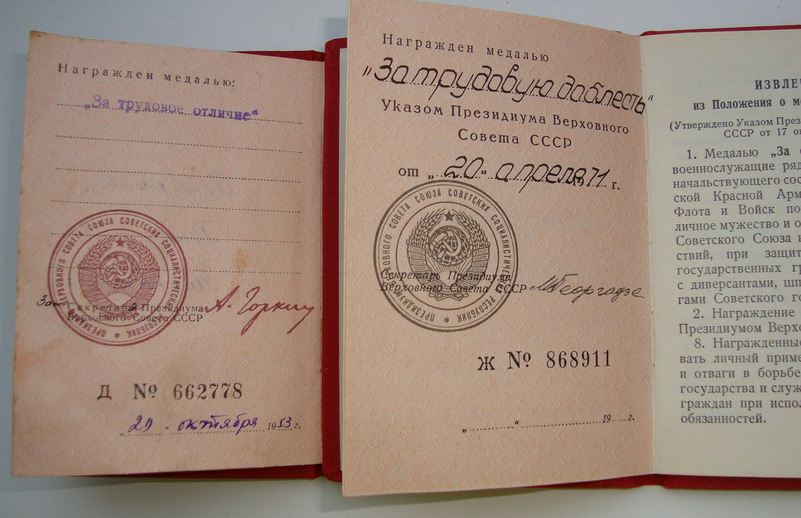 Награжден медалью:
„За трудовое отличие“
ПРЕЗИДИУМ ВЕРХОВНОГО СОВЕТА СОЮЗА СОВЕТСКИХ СОЦИАЛИСТИЧЕСКИХ РЕСПУБЛИК
Секретарь Президиума
Верховного Совета СССР
А. Горкин
Д № 662778
29 октября 1953 г.
Награжден медалью
„За трудовую доблесть“
Указом Президиума Верховного
Совета СССР
от „20“ апреля 1971 г.
ПРЕЗИДИУМ ВЕРХОВНОГО СОВЕТА СОЮЗА СОВЕТСКИХ СОЦИАЛИСТИЧЕСКИХ РЕСПУБЛИК
Секретарь Президиума
Верховного Совета СССР
М Георгадзе
Ж № 868911
„ “ 19 г.
ИЗВЛЕ
из Положения о м
(Утверждено Указом През
СССР от 17 о
1. Медалью „За
военнослужащие ряд
начальствующего сос
ской Красной Арм
Флота и Войск по
личное мужество и о
Советского Союза в
ствий, при защит
государственных гр
с диверсантами, шп
гами Советского го
2. Награждение
Президиумом Верхо
8. Награжденные
вать личный приме
и отваги в борьбе
государства и служ
граждан при испол
обязанностей.